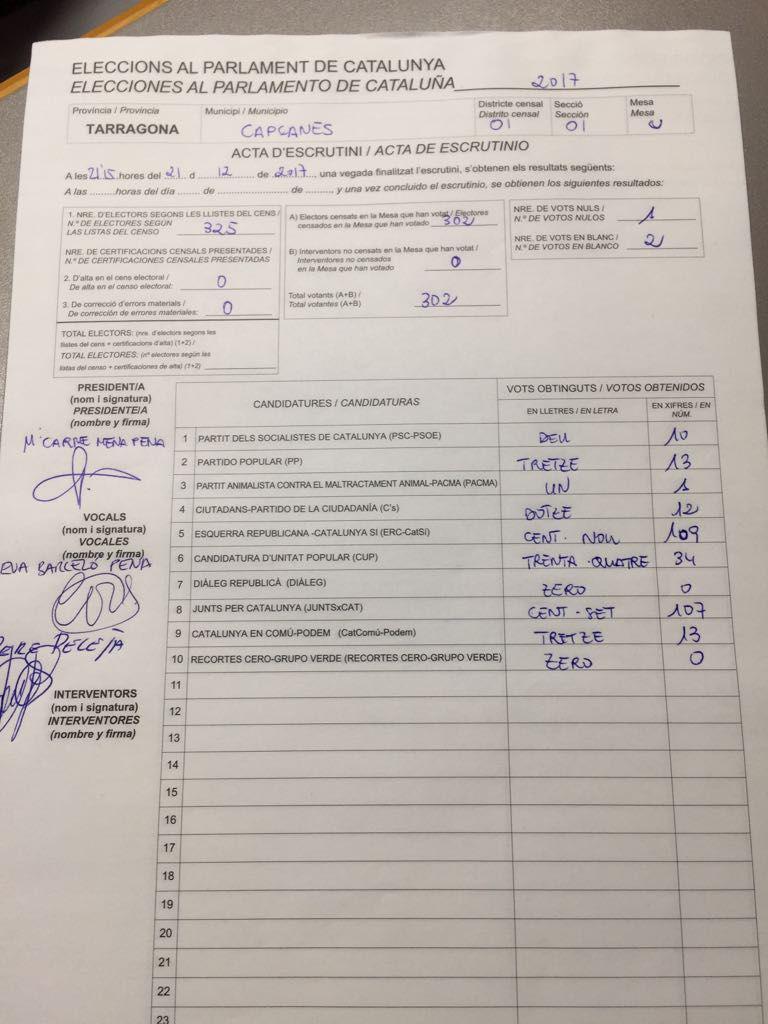 ELECCIONS AL PARLAMENT DE CATALUNYA
ELECCIONES AL PARLAMENTO DE CATALUÑA 2017
Província / Provincia
TARRAGONA
Municipi / Municipio
CAPÇANES
Districte censal
Distrito censal
01
Secció
Sección
01
Mesa
Mesa
U
ACTA D'ESCRUTINI / ACTA DE ESCRUTINIO
A les 21'15 hores del 21 d 12 de 2017, una vegada finalitzat l'escrutini, s'obtenen els resultats següents:
A las .........horas del día ....... de ......................... de ........, y una vez concluido el escrutinio, se obtienen los siguientes resultados:
1. NRE. D'ELECTORS SEGONS LES LLISTES DEL CENS /
N.º DE ELECTORES SEGÚN
LAS LISTAS DEL CENSO 325
NRE. DE CERTIFICACIONS CENSALS PRESENTADES /
N.º DE CERTIFICACIONES CENSALES PRESENTADAS
2. D'alta en el cens electoral /
De alta en el censo electoral: 0
3. De correcció d'errors materials /
De corrección de errores materiales: 0
TOTAL ELECTORS: (nre. d'electors segons les
llistes del cens + certificacions d'alta) (1+2) /
TOTAL ELECTORES: (nº electores según las
listas del censo + certificaciones de alta) (1+2)
A) Electors censats en la Mesa que han votat / Electores
censados en la Mesa que han votado 302
B) Interventors no censats en la Mesa que han votat /
Interventores no censados
en la Mesa que han votado 0
Total votants (A+B) /
Total votantes (A+B) 302
NRE. DE VOTS NULS /
N.º DE VOTOS NULOS 1
NRE. DE VOTS EN BLANC /
N.º DE VOTOS EN BLANCO 2
PRESIDENT/A
(nom i signatura)
PRESIDENTE/A
(nombre y firma)
Mª CARME MENA PENA
VOCALS
(nom i signatura)
VOCALES
(nombre y firma)
EVA BARCELÓ PENA
PERE PELEJÀ
INTERVENTORS
(nom i signatura)
INTERVENTORES
(nombre y firma)
CANDIDATURES / CANDIDATURAS
VOTS OBTINGUTS / VOTOS OBTENIDOS
EN LLETRES / EN LETRA
EN XIFRES / EN NÚM.
1 PARTIT DELS SOCIALISTES DE CATALUNYA (PSC-PSOE) DEU 10
2 PARTIDO POPULAR (PP) TRETZE 13
3 PARTIT ANIMALISTA CONTRA EL MALTRACTAMENT ANIMAL-PACMA (PACMA) UN 1
4 CIUTADANS-PARTIDO DE LA CIUDADANÍA (C's) DOTZE 12
5 ESQUERRA REPUBLICANA -CATALUNYA SI (ERC-CatSí) CENT. NOU 109
6 CANDIDATURA D'UNITAT POPULAR (CUP) TRENTA-QUATRE 34
7 DIÀLEG REPUBLICÀ (DIÀLEG) ZERO 0
8 JUNTS PER CATALUNYA (JUNTSxCAT) CENT-SET 107
9 CATALUNYA EN COMÚ-PODEM (CatComú-Podem) TRETZE 13
10 RECORTES CERO-GRUPO VERDE (RECORTES CERO-GRUPO VERDE) ZERO 0
11
12
13
14
15
16
17
18
19
20
21
22
23